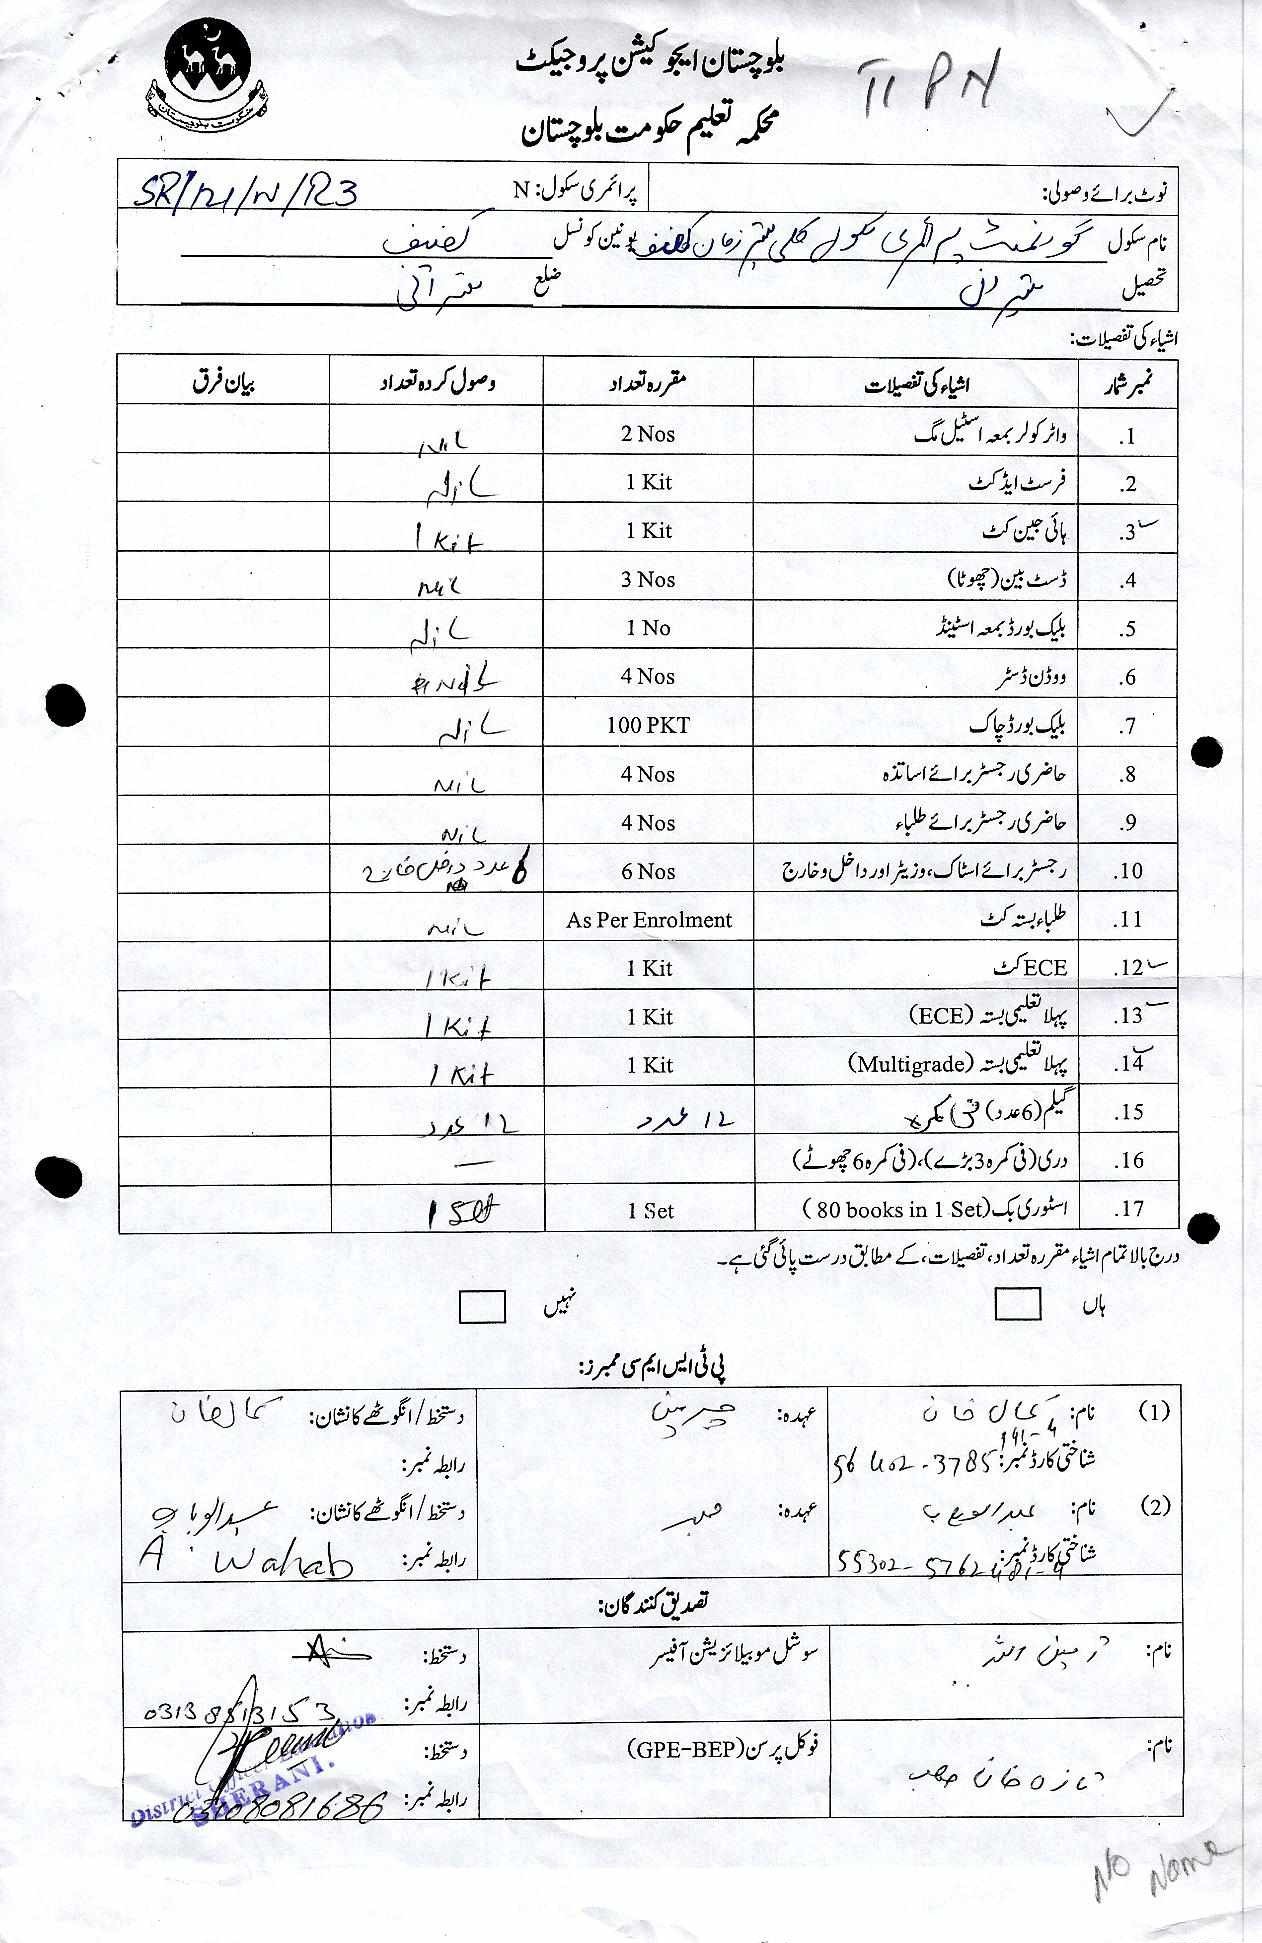 حکومت بلوچستان
بلوچستان ایجوکیشن پروجیکٹ
محکمہ تعلیم حکومت بلوچستان
نوٹ برائے وصولی: پرائمری سکول: N
نام سکول گورنمنٹ پرائمری سکول کلی یونین کونسل
تحصیل ضلع
اشیاء کی تفصیلات:
نمبر شمار اشیاء کی تفصیلات مقررہ تعداد وصول کردہ تعداد بیان فرق
.1 واٹر کولر بمعہ اسٹیل مگ 2 Nos Nil
.2 فرسٹ ایڈ کٹ 1 Kit Nil
.3 ہائی جین کٹ 1 Kit 1 Kit
.4 ڈسٹ بین (چھوٹا) 3 Nos Nil
.5 بلیک بورڈ بمعہ اسٹینڈ 1 No Nil
.6 ووڈن ڈسٹر 4 Nos
.7 بلیک بورڈ چاک 100 PKT Nil
.8 حاضری رجسٹر برائے اساتذہ 4 Nos Nil
.9 حاضری رجسٹر برائے طلباء 4 Nos Nil
.10 رجسٹر برائے اسٹاک، وزیٹر اور داخل و خارج 6 Nos 6 عدد داخل خارج
.11 طلباء بستہ کٹ As Per Enrolment Nil
.12 ECE کٹ 1 Kit 1 Kit
.13 پہلا تعلیمی بستہ (ECE) 1 Kit 1 Kit
.14 پہلا تعلیمی بستہ (Multigrade) 1 Kit 1 Kit
.15 گیلم (6 عدد) فی کمرہ 12 عدد 12 عدد
.16 دری (فی کمرہ 3 بڑے)، (فی کمرہ 6 چھوٹے) —
.17 اسٹوری بک (80 books in 1 Set) 1 Set 1 Set
درج بالا تمام اشیاء مقررہ تعداد، تفصیلات، کے مطابق درست پائی گئی ہے۔
ہاں نہیں
پی ٹی ایس ایم سی ممبرز:
(1) نام: کمال خان عہدہ: چیرمین دستخط/انگوٹھے کا نشان: کمال خان
شناختی کارڈ نمبر: رابطہ نمبر:
(2) نام: عبدالوہاب عہدہ: ممبر دستخط/انگوٹھے کا نشان: عبدالوہاب
شناختی کارڈ نمبر: رابطہ نمبر: A. Wahab
تصدیق کنندگان:
نام: سوشل موبیلائزیشن آفیسر دستخط:
رابطہ نمبر: 03138513153
نام: فوکل پرسن (GPE-BEP) دستخط:
رابطہ نمبر: 03108081686
District Officer Education
SHERANI.
No Name